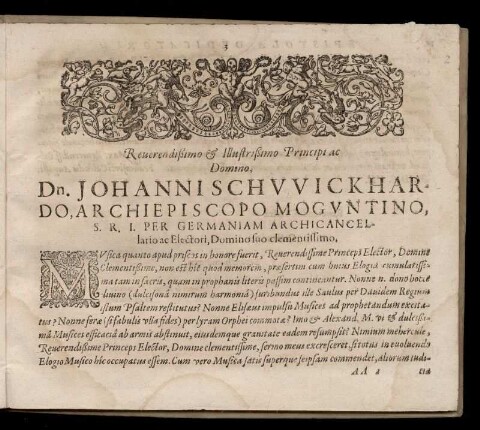 3
Reuerendißimo & Illustrißimo Principi ac
Domino,
Dn. JOHANNI SCHVVICKHAR-
DO, ARCHIEPISCOPO MOGVNTINO,
S. R. I. PER GERMANIAM ARCHICANCEL-
lario ac Electori, Domino suo clementissimo,
MVsica quanto apud priscos in honore fuerit, Reuerendissime Princeps Elector, Domine
Clementißime, non est hîc quod memorem, præsertim cum huius Elogia cumulatißi-
ma tam in sacris, quam in prophanis literis passim contineantur. Nonne n. dono hoc
diuino (dulcisona nimirum harmonia) furibundus ille Saulus per Dauidem Regium
istum Psaltem restitutus? Nonne Elisæus impulsu Musices ad prophetandum excita-
tus? Nonne feræ (si fabulis vlla fides) per lyram Orphei commotæ? Imo & Alexand. M. vi & dulcißi-
mâ Musices efficaciâ ab armis abstinuit, eiusdemque grauitate eadem resumpsit? Nimium mehercule,
Reuerendißime Princeps Elector, Domine clementissime, sermo meus excresceret, si totus in euoluendo
Elogio Musico hîc occupatus essem. Cum vero Musica satis superque seipsam commendet, aliorum iudi-
AA 2 cia